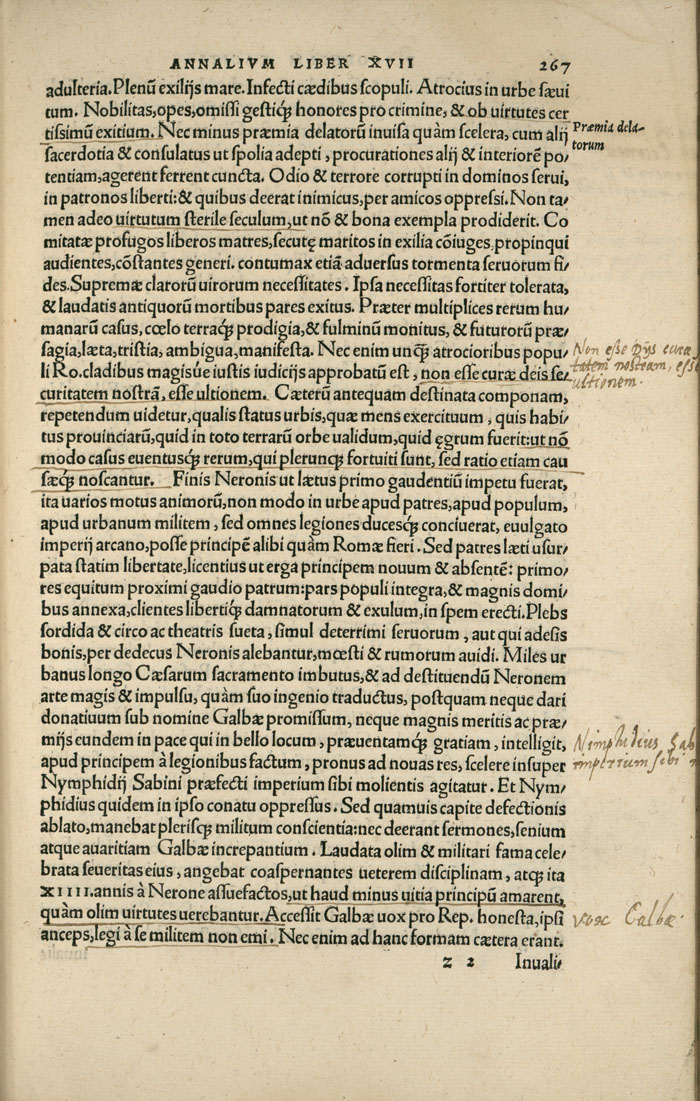 ANNALIVM LIBER XVII 267
adulteria. Plenũ exilijs mare. Infecti cædibus scopuli. Atrocius in urbe sæui
tum. Nobilitas, opes, omissi gestiq́; honores pro crimine, & ob uirtutes cer
tissimũ exitium. Nec minus præmia delatorũ inuisa quàm scelera, cum alij
Præmia dela-
torum
sacerdotia & consulatus ut spolia adepti, procurationes alij & interiorẽ po/
tentiam, agerent ferrent cuncta. Odio & terrore corrupti in dominos serui,
in patronos liberti: & quibus deerat inimicus, per amicos oppressi. Non ta/
men adeo uirtutum sterile seculum, ut nõ & bona exempla prodiderit. Co
mitatæ profugos liberos matres, secutę maritos in exilia cõiuges. propinqui
audientes, cõstantes generi. contumax etiã aduersus tormenta seruorum fi/
des. Supremæ clarorũ uirorum necessitates. Ipsa necessitas fortiter tolerata,
& laudatis antiquorũ mortibus pares exitus. Præter multiplices rerum hu/
manarũ casus, cœlo terraq́; prodigia, & fulminũ monitus, & futurorũ præ/
sagia, læta, tristia, ambigua, manifesta. Nec enim unq̃ atrocioribus popu/
li Ro. cladibus magisúe iustis iudicijs approbatũ est, non esse curæ deis se/
curitatem nostrã, esse ultionem. Cæterũ antequam destinata componam,
Non esse Dijs curæ
tatem nostram, esse
ultionem.
repetendum uidetur, qualis status urbis, quæ mens exercituum, quis habi/
tus prouinciarũ, quid in toto terrarũ orbe ualidum, quid ęgrum fuerit: ut nõ
modo casus euentusq́; rerum, qui plerunq; fortuiti sunt, sed ratio etiam cau
sæq́; noscantur. Finis Neronis ut lætus primo gaudentiũ impetu fuerat,
ita uarios motus animorũ, non modo in urbe apud patres, apud populum,
apud urbanum militem, sed omnes legiones ducesq́; conciuerat, euulgato
imperij arcano, posse principẽ alibi quàm Romæ fieri. Sed patres læti usur/
pata statim libertate, licentius ut erga principem nouum & absentẽ: primo/
res equitum proximi gaudio patrum: pars populi integra, & magnis domi/
bus annexa, clientes libertiq́; damnatorum & exulum, in spem erecti. Plebs
sordida & circo ac theatris sueta, simul deterrimi seruorum, aut qui adesis
bonis, per dedecus Neronis alebantur, mœsti & rumorum auidi. Miles ur
banus longo Cæsarum sacramento imbutus, & ad destituendũ Neronem
arte magis & impulsu, quàm suo ingenio traductus, postquam neque dari
donatiuum sub nomine Galbæ promissum, neque magnis meritis ac præ/
mijs eundem in pace qui in bello locum, præuentamq́; gratiam, intelligit,
apud principem à legionibus factum, pronus ad nouas res, scelere insuper
Nymphidij Sabini præfecti imperium sibi molientis agitatur. Et Nym/
Nimphidius Sab
imperium sibi
phidius quidem in ipso conatu oppressus. Sed quamuis capite defectionis
ablato, manebat plerisq; militum conscientia: nec deerant sermones, senium
atque auaritiam Galbæ increpantium. Laudata olim & militari fama cele/
brata seueritas eius, angebat coaspernantes ueterem disciplinam, atq; ita
XIIII. annis à Nerone assuefactos, ut haud minus uitia principũ amarent,
quàm olim uirtutes uerebantur. Accessit Galbæ uox pro Rep. honesta, ipsi
vox Galbæ.
anceps, legi à se militem non emi. Nec enim ad hanc formam cætera erant.
z 2 Inuali/